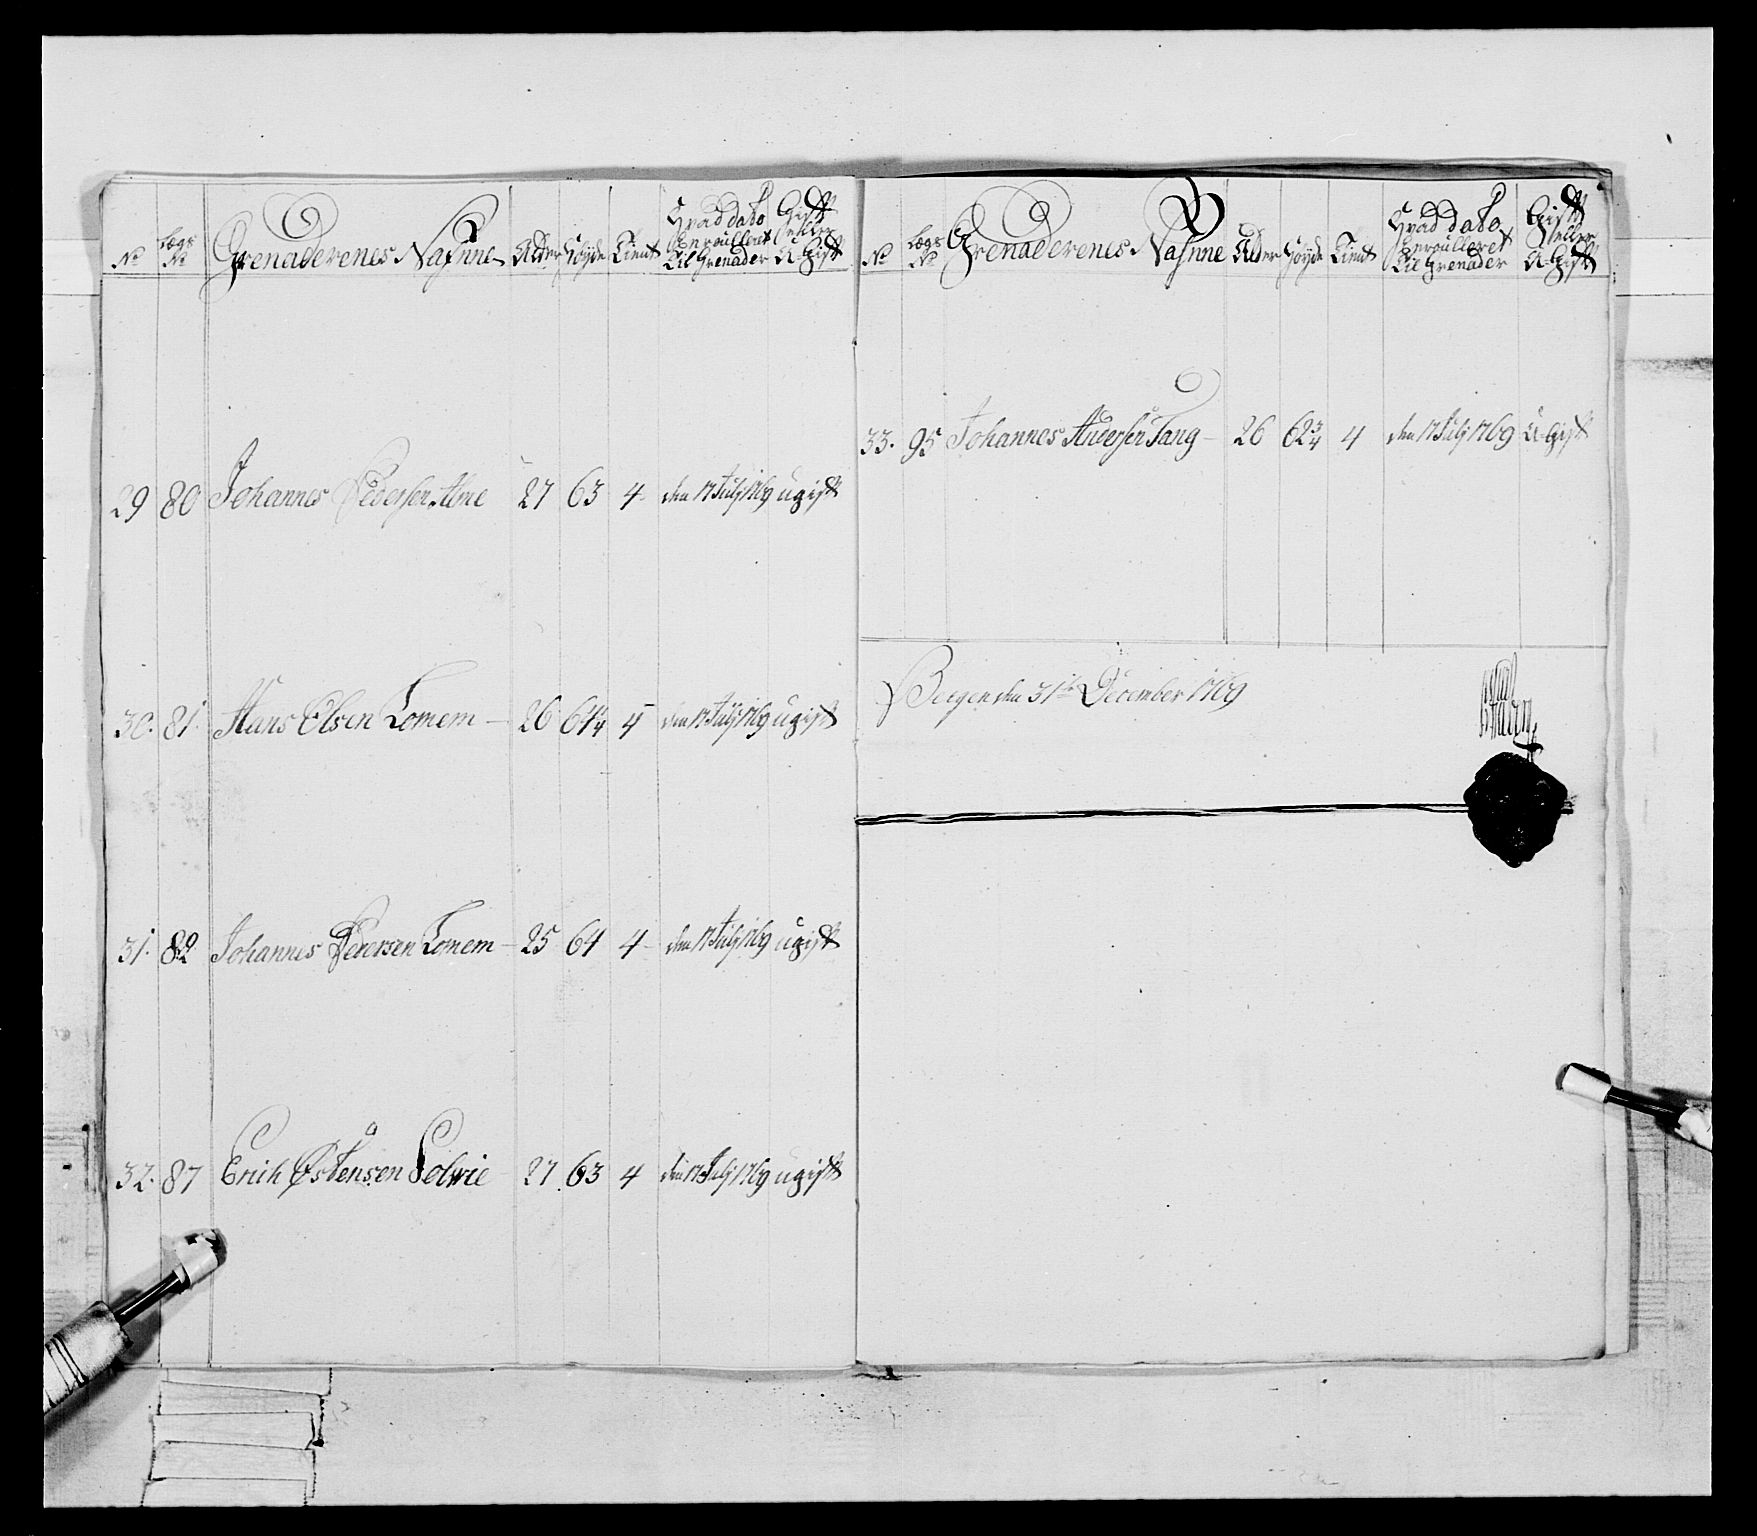 No Lægs No Grenaderenes Nafnne Alder Høyde Tient Hvad dato Enroulleret til Grenader Gift eller U-Gift
29 80 Johannes Pedersen Alme 27 63 4 den 17 July 1769 ugift
30. 81. Hans Olsen Lomem 26 64 1/4 4 den 17 July 1769 ugift
31. 82 Johannes Pedersen Lomem 25 64 4 den 17 July 1769 ugift
32. 87 Erich Østensen Solwie 27 63 4 den 17 July 1769 ugift
No Lægs No Grenaderenes Nafnne Alder Høyde Tient Hvad dato Enroulleret til Grenader Gift eller U-Gift
33. 95 Johannes Andersen Tang 26 62 3/4 4 den 17 July 1769 U-Gift
Bergen den 31te December 1769